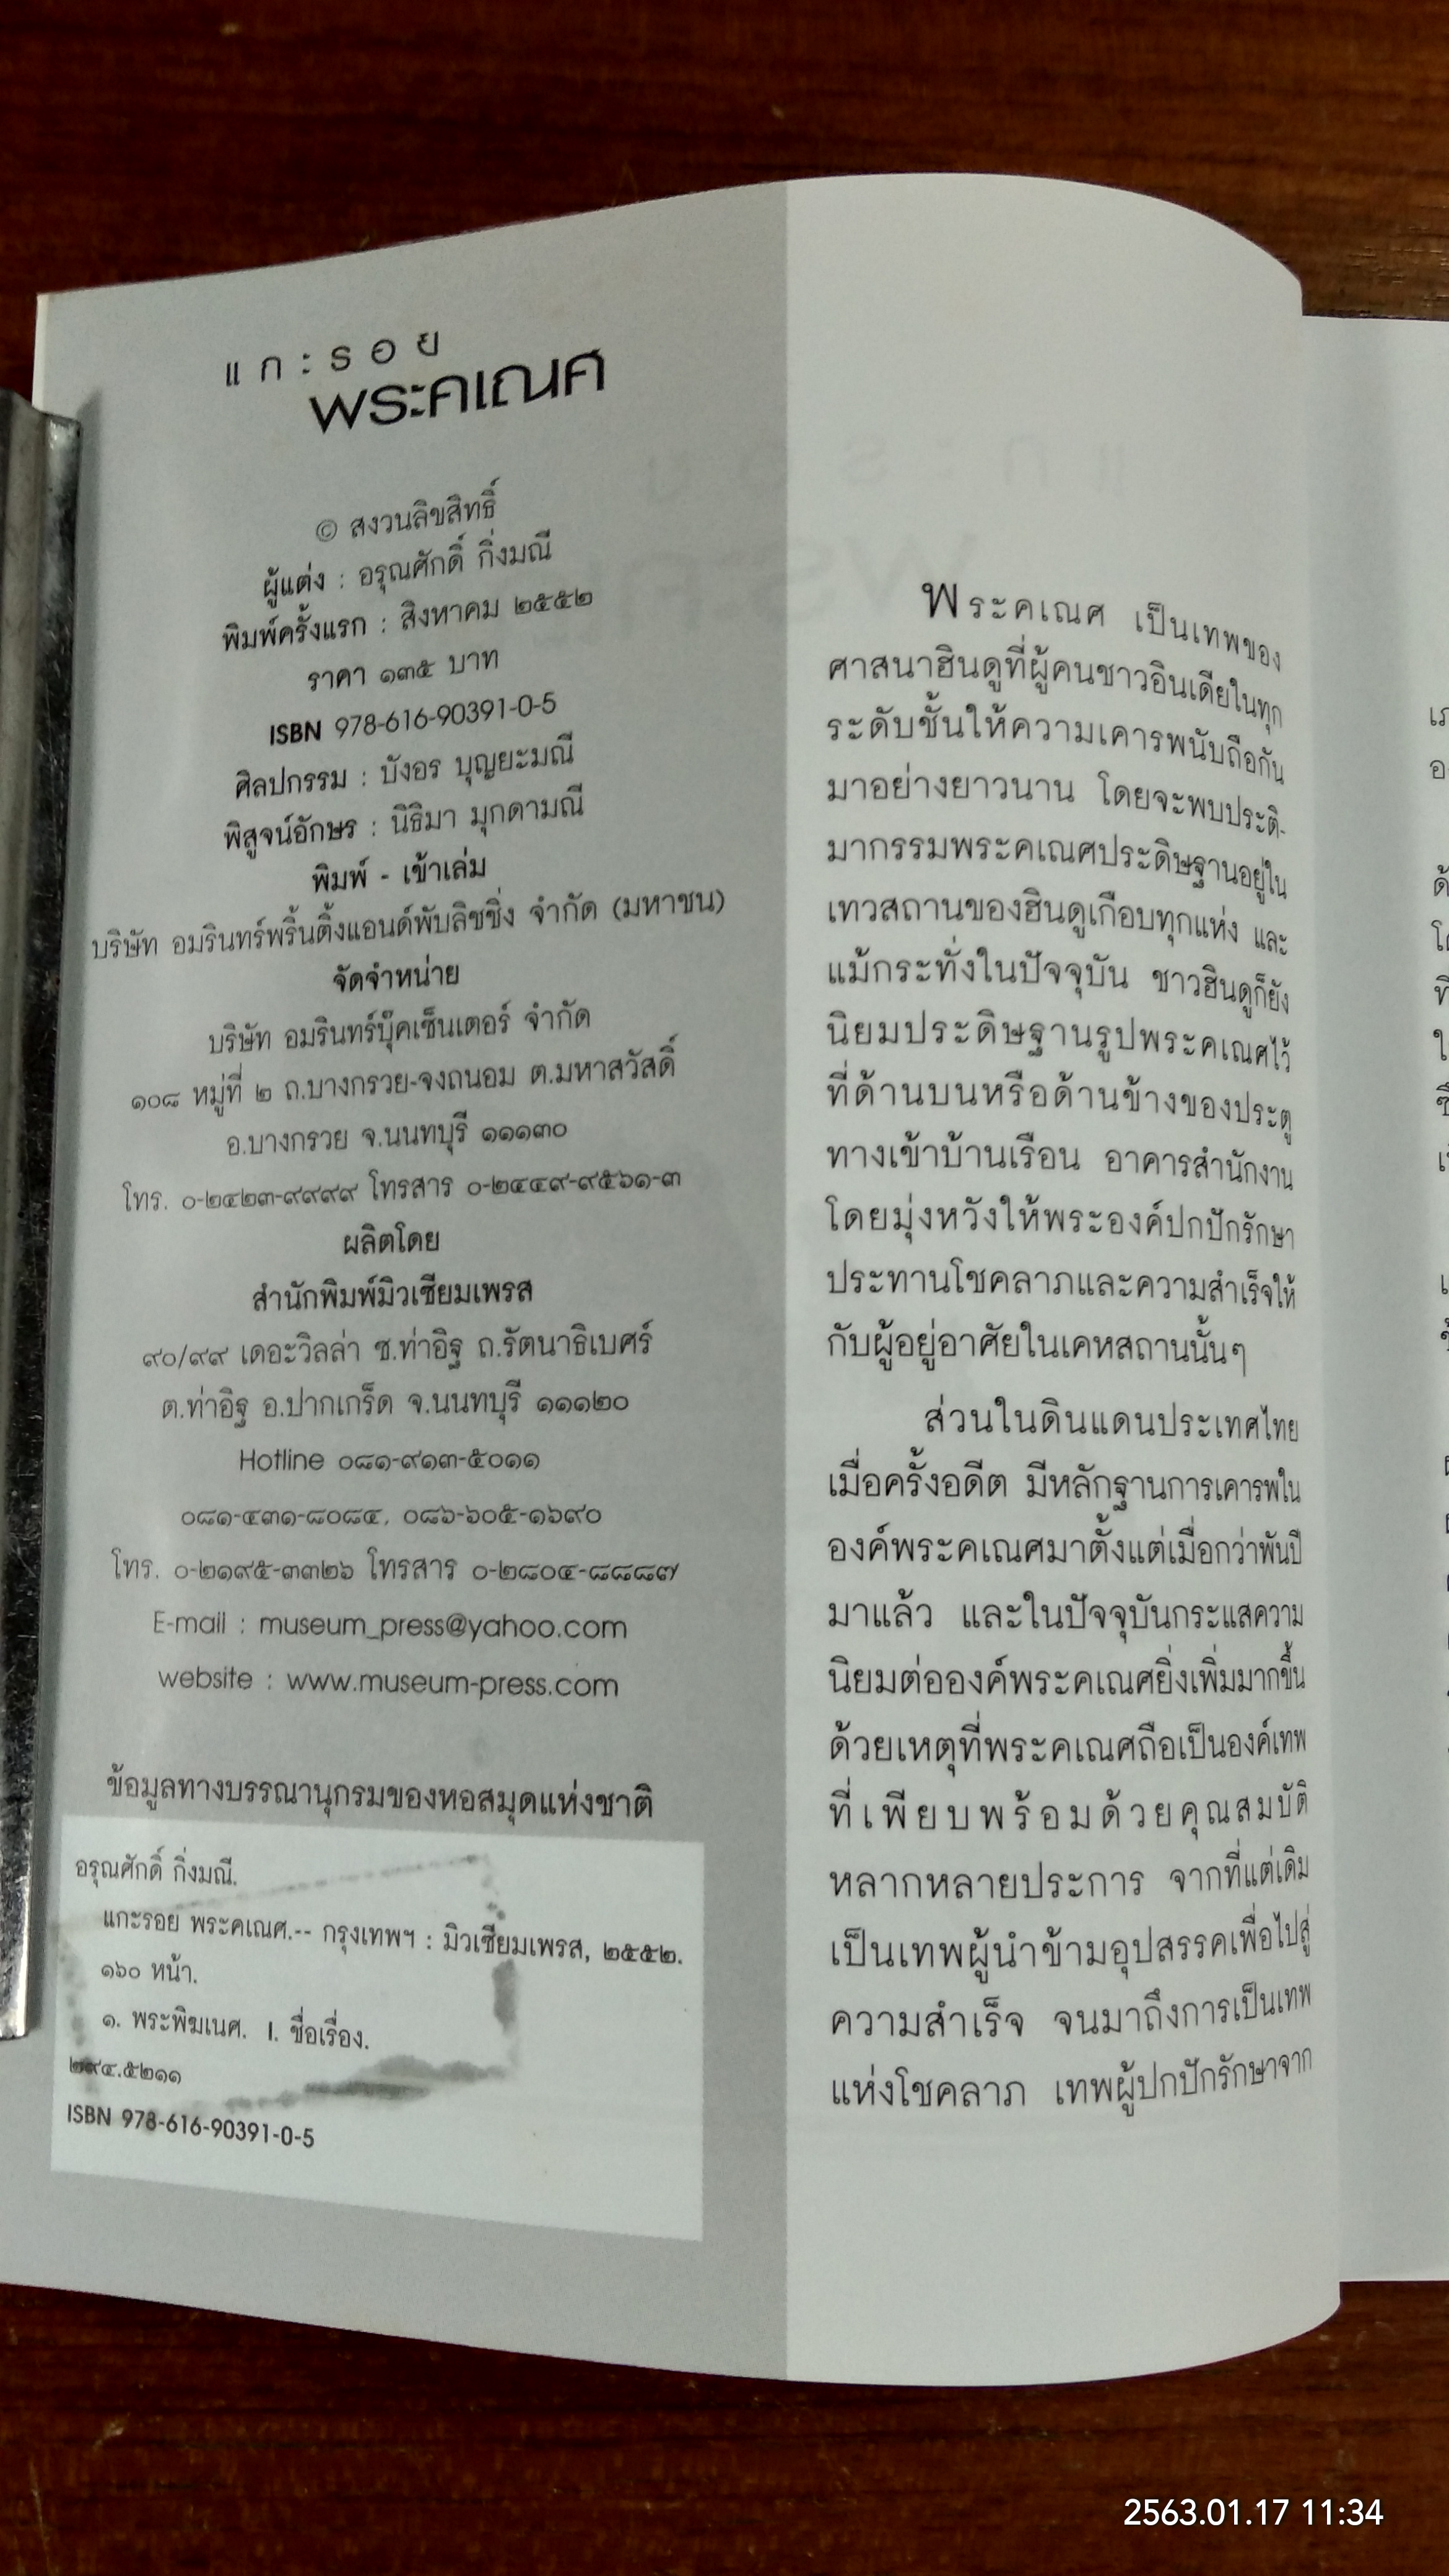 แกะรอย
พระคเณศ
© สงวนลิขสิทธิ์
ผู้แต่ง : อรุณศักดิ์ กิ่งมณี
พิมพ์ครั้งแรก : สิงหาคม ๒๕๕๒
ราคา ๑๓๕ บาท
ISBN 978-616-90391-0-5
ศิลปกรรม : บังอร บุญยะมณี
พิสูจน์อักษร : นิธิมา มุกดามณี
พิมพ์ - เข้าเล่ม
บริษัท อมรินทร์พริ้นติ้งแอนด์พับลิชชิ่ง จำกัด (มหาชน)
จัดจำหน่าย
บริษัท อมรินทร์บุ๊คเซ็นเตอร์ จำกัด
๑๐๘ หมู่ที่ ๒ ถ.บางกรวย-จงถนอม ต.มหาสวัสดิ์
อ.บางกรวย จ.นนทบุรี ๑๑๑๓๐
โทร. ๐-๒๔๒๓-๙๙๙๙ โทรสาร ๐-๒๔๔๙-๙๕๖๑-๓
ผลิตโดย
สำนักพิมพ์มิวเซียมเพรส
๙๐/๙๙ เดอะวิลล่า ซ.ท่าอิฐ ถ.รัตนาธิเบศร์
ต.ท่าอิฐ อ.ปากเกร็ด จ.นนทบุรี ๑๑๑๒๐
Hotline ๐๘๑-๙๑๓-๕๐๑๑
๐๘๑-๔๓๑-๘๐๘๔, ๐๘๖-๖๐๕-๑๖๙๐
โทร. ๐-๒๑๙๕-๓๓๒๖ โทรสาร ๐-๒๘๐๔-๘๘๘๗
E-mail : museum_press@yahoo.com
website : www.museum-press.com
ข้อมูลทางบรรณานุกรมของหอสมุดแห่งชาติ
อรุณศักดิ์ กิ่งมณี.
แกะรอย พระคเณศ.-- กรุงเทพฯ : มิวเซียมเพรส, ๒๕๕๒.
๑๖๐ หน้า.
๑. พระพิฆเนศ. I. ชื่อเรื่อง.
๒๙๔.๕๒๑๑
ISBN 978-616-90391-0-5
พระคเณศ เป็นเทพของ
ศาสนาฮินดูที่ผู้คนชาวอินเดียในทุก
ระดับชั้นให้ความเคารพนับถือกัน
มาอย่างยาวนาน โดยจะพบประติ-
มากรรมพระคเณศประดิษฐานอยู่ใน
เทวสถานของฮินดูเกือบทุกแห่ง และ
แม้กระทั่งในปัจจุบัน ชาวฮินดูก็ยัง
นิยมประดิษฐานรูปพระคเณศไว้
ที่ด้านบนหรือด้านข้างของประตู
ทางเข้าบ้านเรือน อาคารสำนักงาน
โดยมุ่งหวังให้พระองค์ปกปักรักษา
ประทานโชคลาภและความสำเร็จให้
กับผู้อยู่อาศัยในเคหสถานนั้นๆ
ส่วนในดินแดนประเทศไทย
เมื่อครั้งอดีต มีหลักฐานการเคารพใน
องค์พระคเณศมาตั้งแต่เมื่อกว่าพันปี
มาแล้ว และในปัจจุบันกระแสความ
นิยมต่อองค์พระคเณศยิ่งเพิ่มมากขึ้น
ด้วยเหตุที่พระคเณศถือเป็นองค์เทพ
ที่เพียบพร้อมด้วยคุณสมบัติ
หลากหลายประการ จากที่แต่เดิม
เป็นเทพผู้นำข้ามอุปสรรคเพื่อไปสู่
ความสำเร็จ จนมาถึงการเป็นเทพ
แห่งโชคลาภ เทพผู้ปกปักรักษาจาก
2563.01.17 11:34